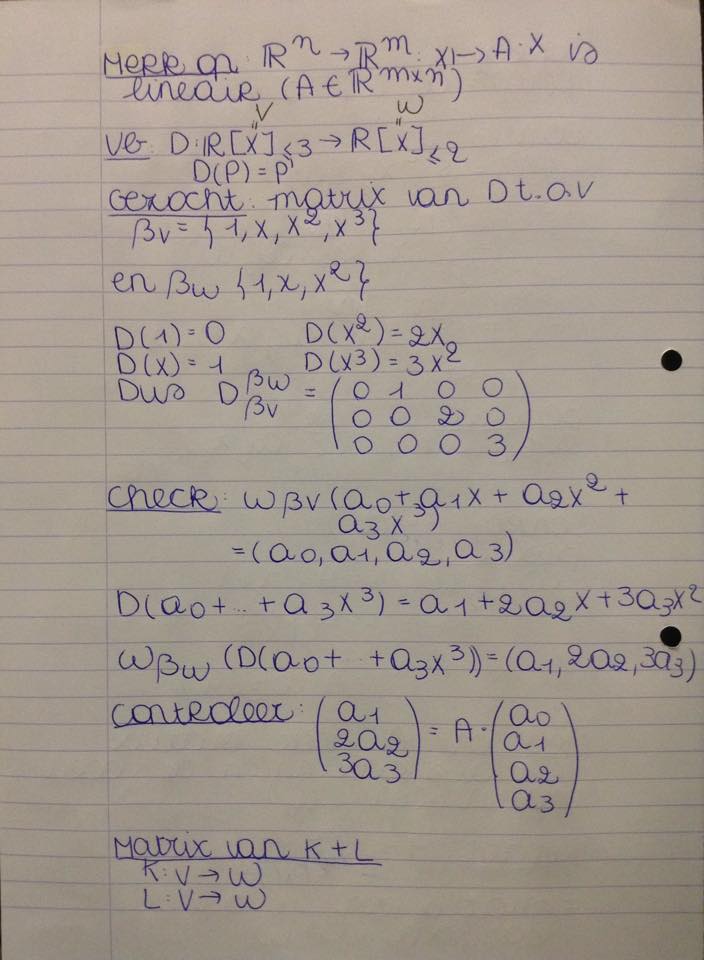 Merk op: ℝⁿ → ℝᵐ: x ↦ A·x is
lineair (A ∈ ℝ^{m×n})
V W
" "
VB: D: ℝ[X]≤3 → ℝ[X]≤2
D(P) = P'
Gezocht: matrix van D t.o.v
βv = {1, x, x², x³}
en βw {1, x, x²}
D(1) = 0 D(x²) = 2x
D(x) = 1 D(x³) = 3x²
Dus D^{βw}_{βv} = (0 1 0 0
0 0 2 0
0 0 0 3)
Check: ωβv(a0 + a1x + a2x² +
a3x³)
= (a0, a1, a2, a3)
D(a0 + .. + a3x³) = a1 + 2a2x + 3a3x²
ωβw (D(a0 + .. + a3x³)) = (a1, 2a2, 3a3)
Controleer: (a1 2a2 3a3) = A · (a0 a1 a2 a3)
Matrix van K + L
K: V → W
L: V → W